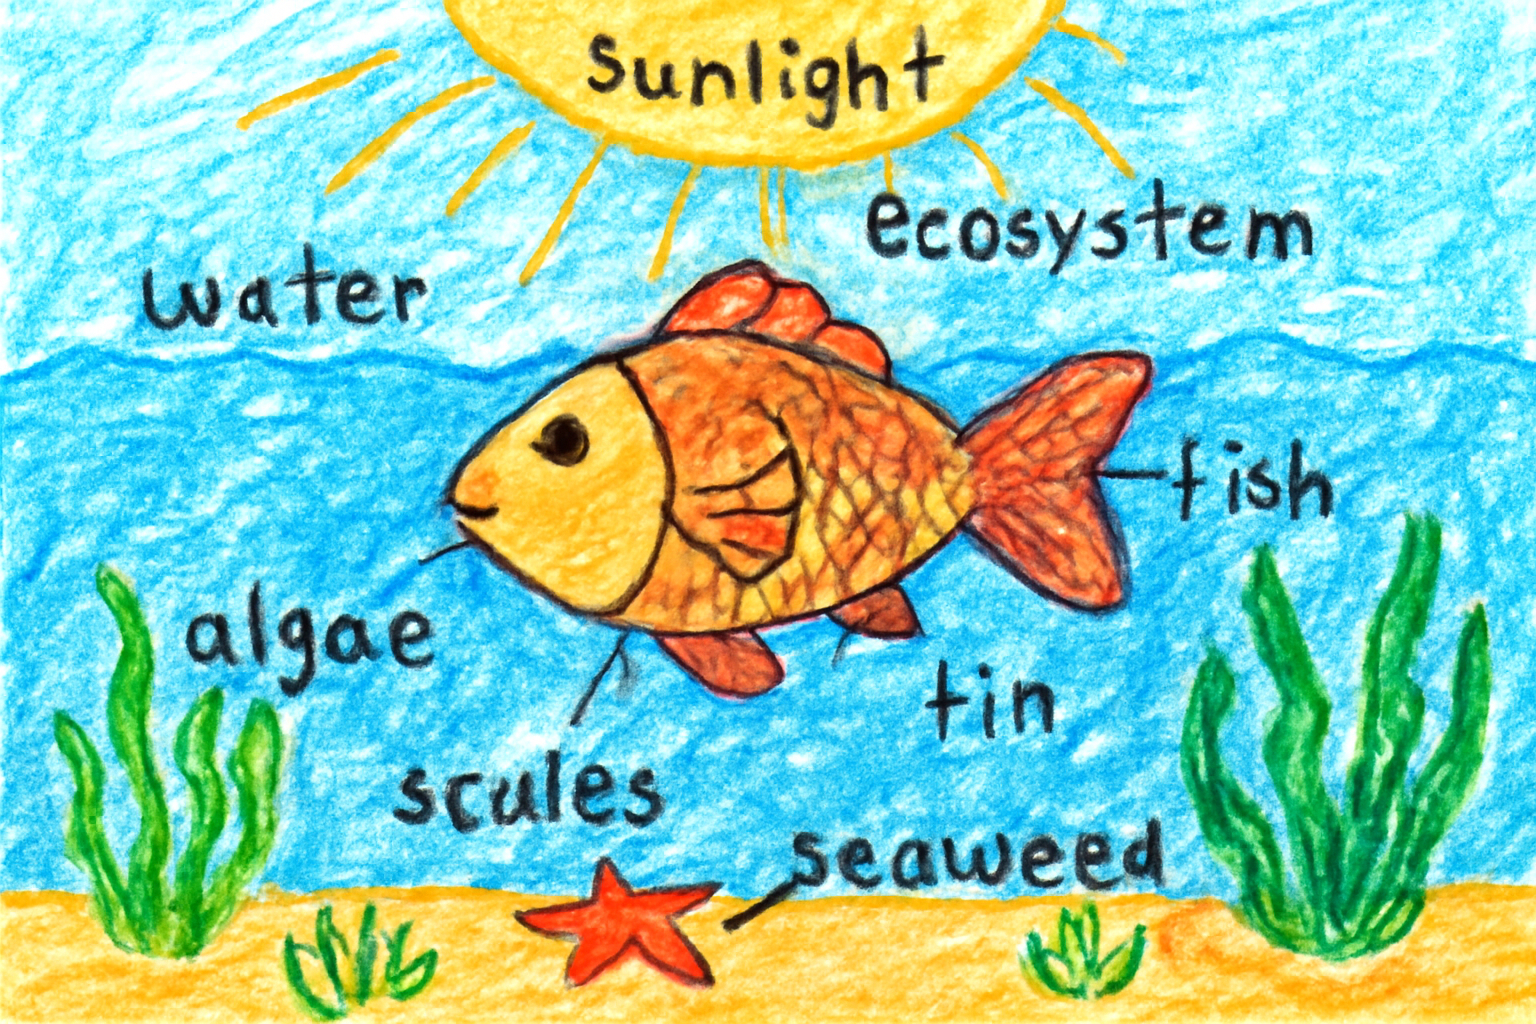 sunlight
ecosystem
water
fish
algae
tin
scules
seaweed